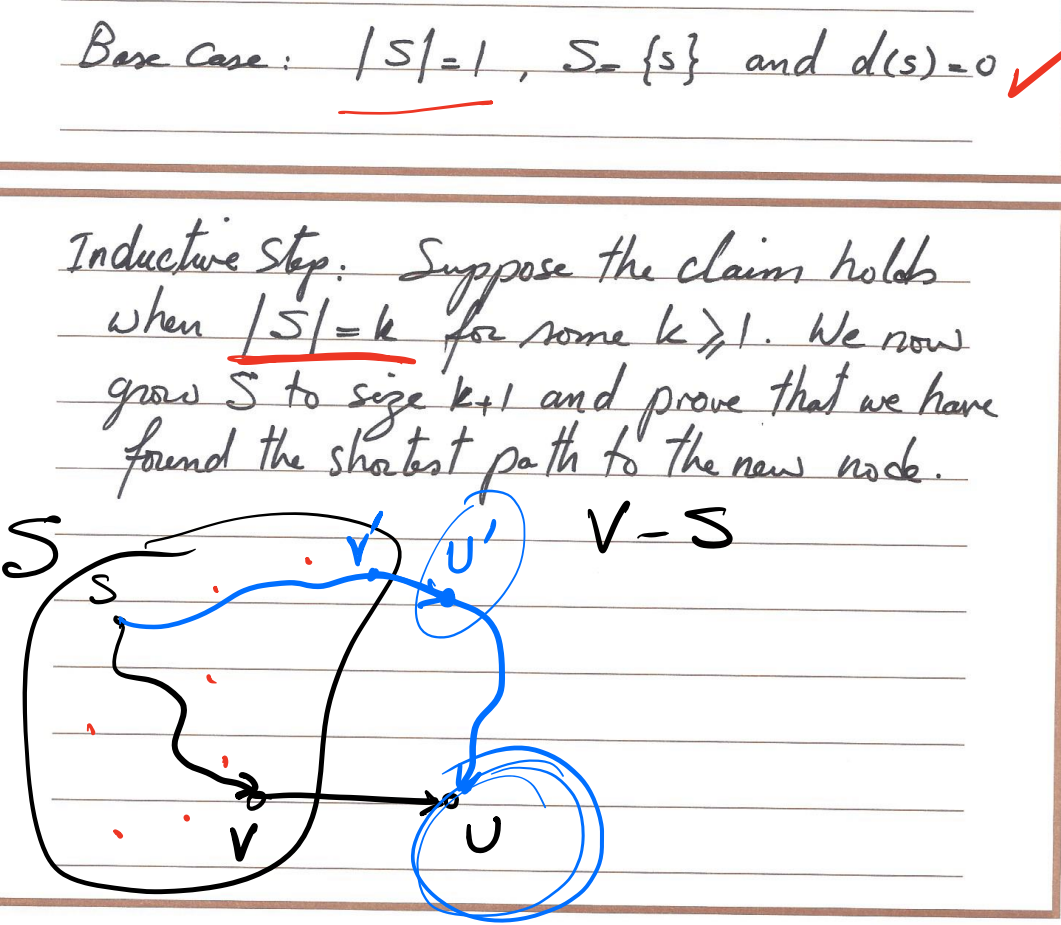 Base Case: |S|=1, S= {s} and d(s)=0
Inductive Step: Suppose the claim holds
when |S|=k for some k≥1. We now
grow S to size k+1 and prove that we have
found the shortest path to the new node.
S V' U' V-S
s
V U